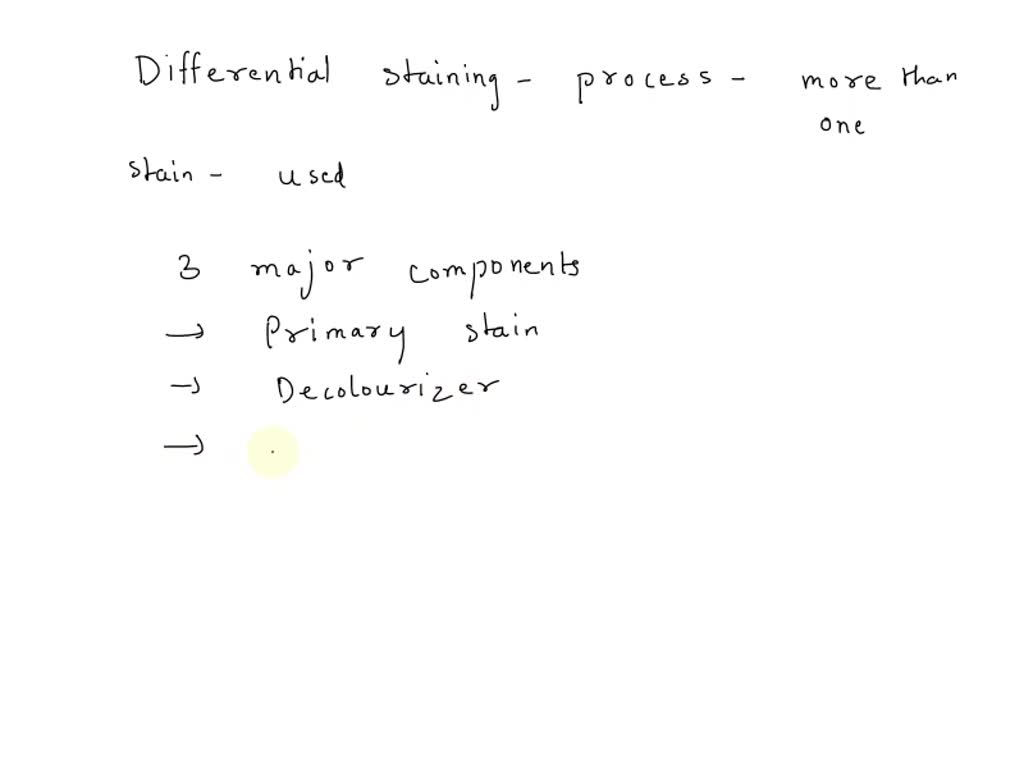 Differential staining - process - more than
one
stain - used
3 major components
→ Primary stain
→ Decolourizer
→ .